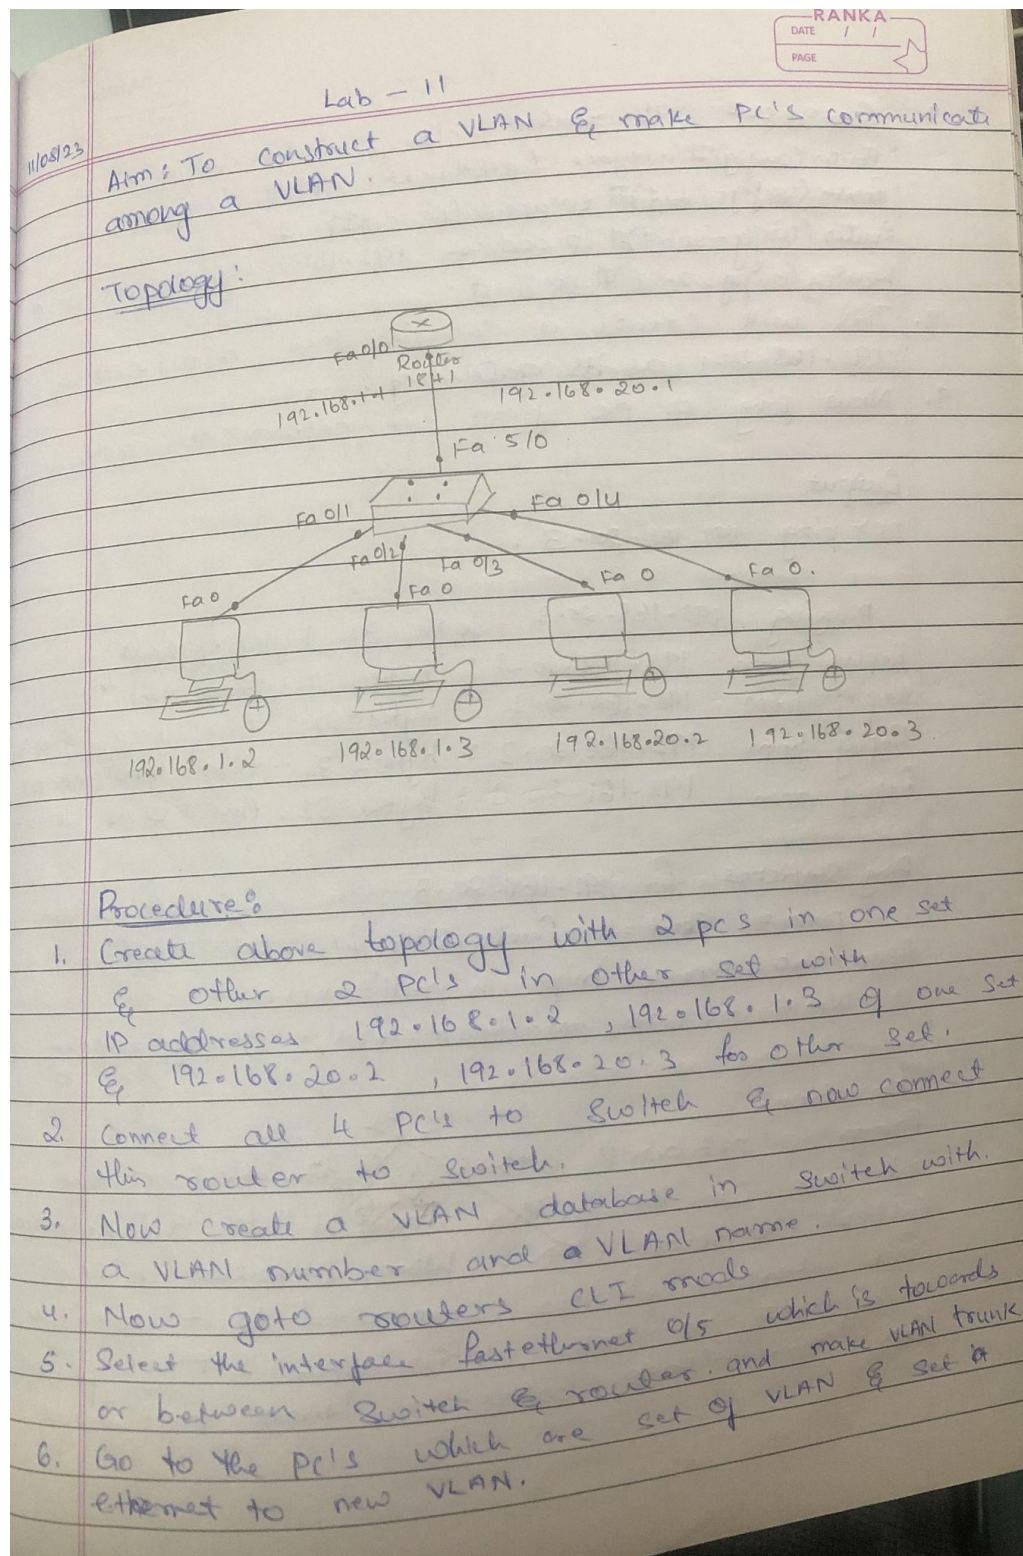 RANKA
DATE / /
PAGE
Lab - 11
11/08/23
Aim: To construct a VLAN & make PC's communicate
among a VLAN.
Topology:
Fa0/0
Router
1841
192.168.1.1
192.168.20.1
Fa 5/0
Fa 0/1
Fa 0/4
Fa 0/2
Fa 0/3
Fa 0
Fa 0
Fa 0
Fa 0.
192.168.1.2
192.168.1.3
192.168.20.2
192.168.20.3
Procedure:
1. Create above topology with 2 pcs in one set
& other 2 PC's in other set with
IP addresses 192.168.1.2, 192.168.1.3 of one set
& 192.168.20.2, 192.168.20.3 for other set.
2. Connect all 4 PC's to Switch & now connect
this router to switch.
3. Now create a VLAN database in switch with.
a VLAN number and a VLAN name.
4. Now goto routers CLI mode
5. Select the interface fastethernet 0/5 which is towards
or between Switch & router. and make VLAN trunk
6. Go to the PC's which are set of VLAN & set it
ethernet to new VLAN.